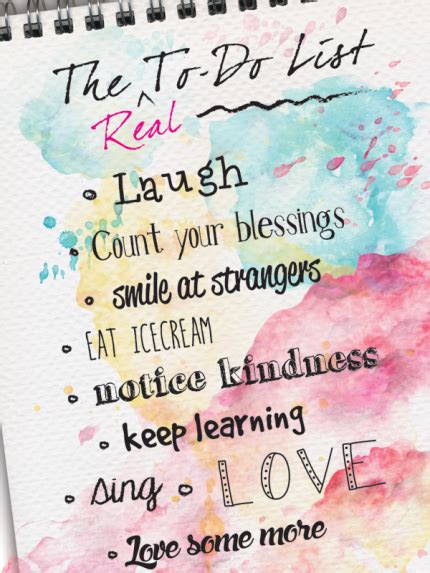 The ^ To-Do List
Real
Laugh
Count your blessings
smile at strangers
EAT ICECREAM
notice kindness
keep learning
sing
LOVE
Love some more